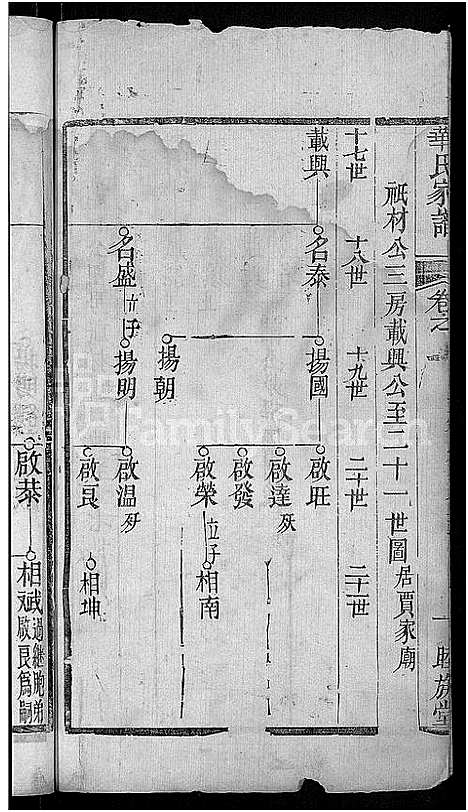 華氏家譜
卷之
一
睦族堂
祇材公三房載興公至二十一世圖 居賈家廟
十七世 十八世 十九世 二十世 二十一世
載興 名泰 揚國 啟旺
啟達 歿
啟發
揚朝 啟榮 立子 相南
名盛 立子 揚明 啟温 歿
啟良 相坤
啟恭 相斌 過繼胞弟
啟良為嗣
FamilySearch